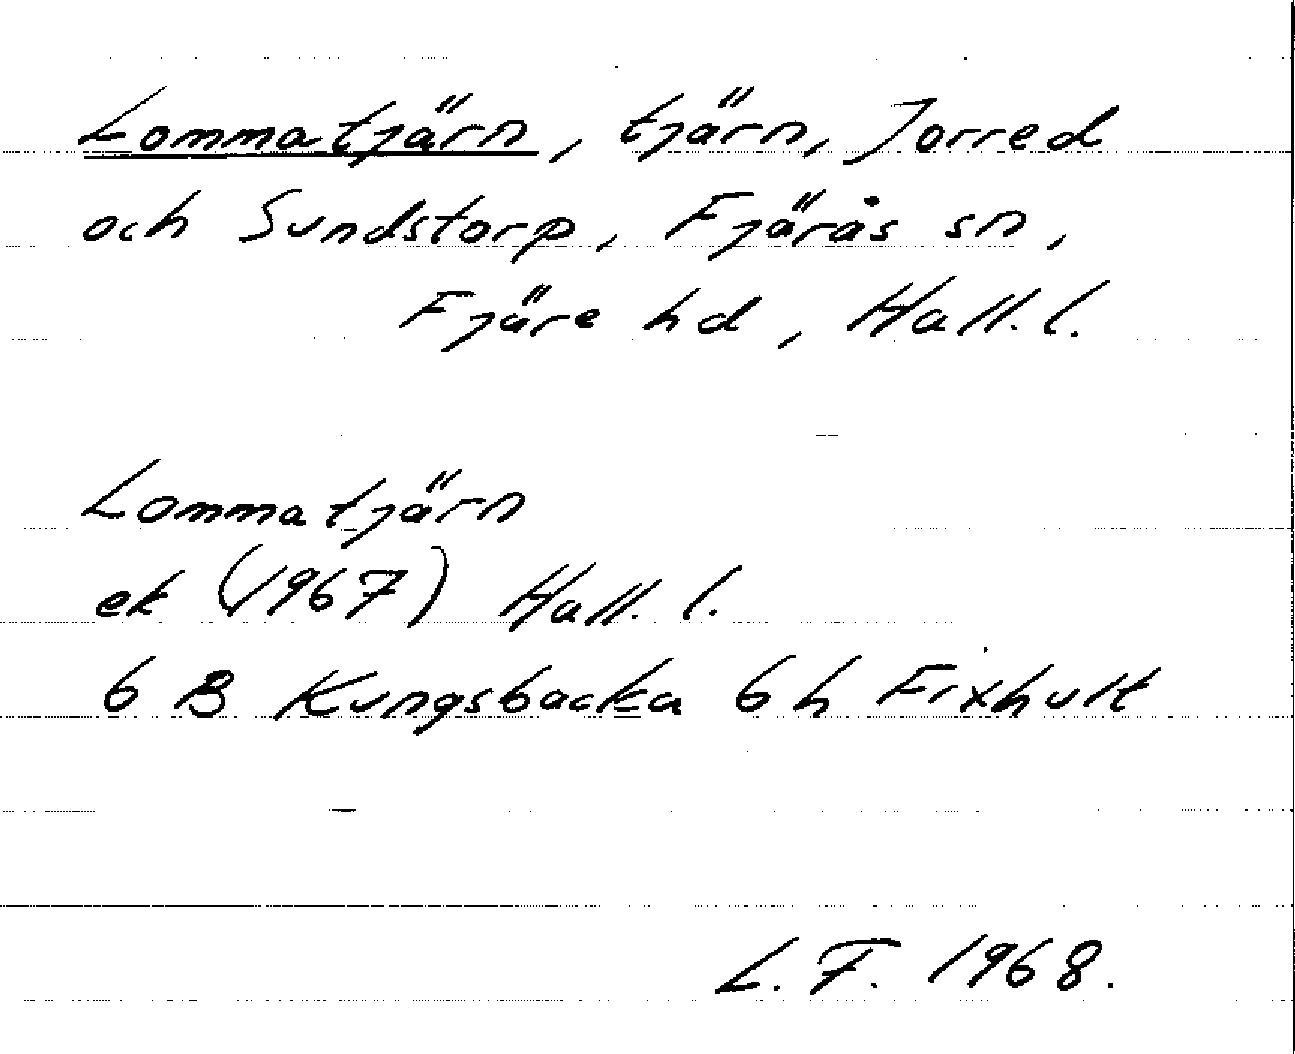 Lommatjärn, tjärn, Jorred
och Sundstorp, Fjärås sn,
Fjäre hd, Hall. l.
Lommatjärn
ek (1967) Hall. l.
6 B Kungsbacka 6 h Frixhult
L. F. 1968.